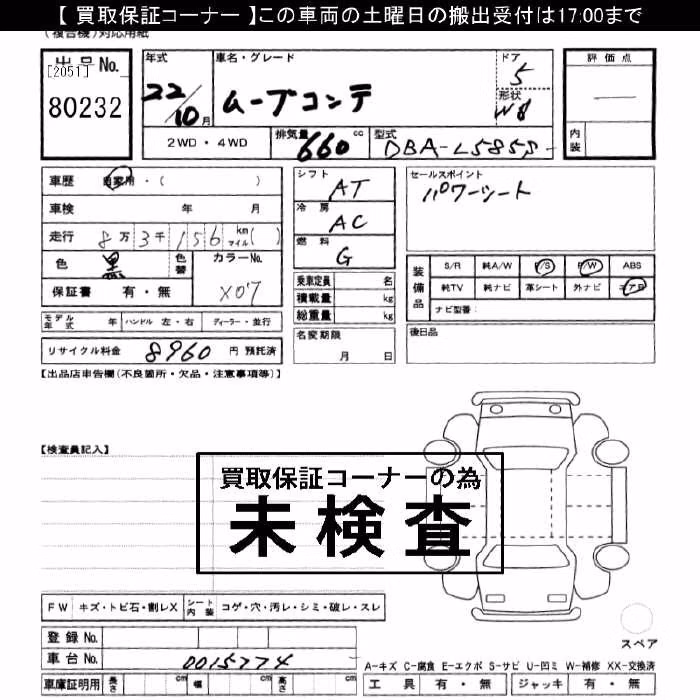 【 買取保証コーナー 】この車両の土曜日の搬出受付は17:00まで
(複合機)対応用紙
出品No.
[2051]
80232
年式
22/10月
車名・グレード
ムーブコンテ
ドア
5
形状
2WD・4WD
排気量
660cc
型式
DBA-L585S-
評価点
—
内装
車歴
自家用・( )
車検 年 月
走行 8万3千156km マイル( )
色 黒
色替
カラーNo.
X07
保証書 有・無
モデル年式 年
ハンドル 左・右
ディーラー・並行
リサイクル料金 8960円 預託済
シフト
AT
冷房
AC
燃料
G
乗車定員 名
積載量 kg
総重量 kg
名変期限
月 日
セールスポイント
パワーシート
装備品
S/R 純A/W P/S P/W ABS
純TV 純ナビ 革シート 外ナビ エアB
ナビ型番:
後日品
【出品店申告欄(不良箇所・欠品・注意事項等)】
【検査員記入】
買取保証コーナーの為
未検査
FW キズ・トビ石・割レX
シート内装 コゲ・穴・汚レ・シミ・破レ・スレ
登録No.
車台No. 0015774
車庫証明用 長さ cm 幅 cm 高さ cm
スペア
A-キズ C-腐食 E-エクボ S-サビ U-凹ミ W-補修 XX-交換済
工具 有・無 ジャッキ 有・無